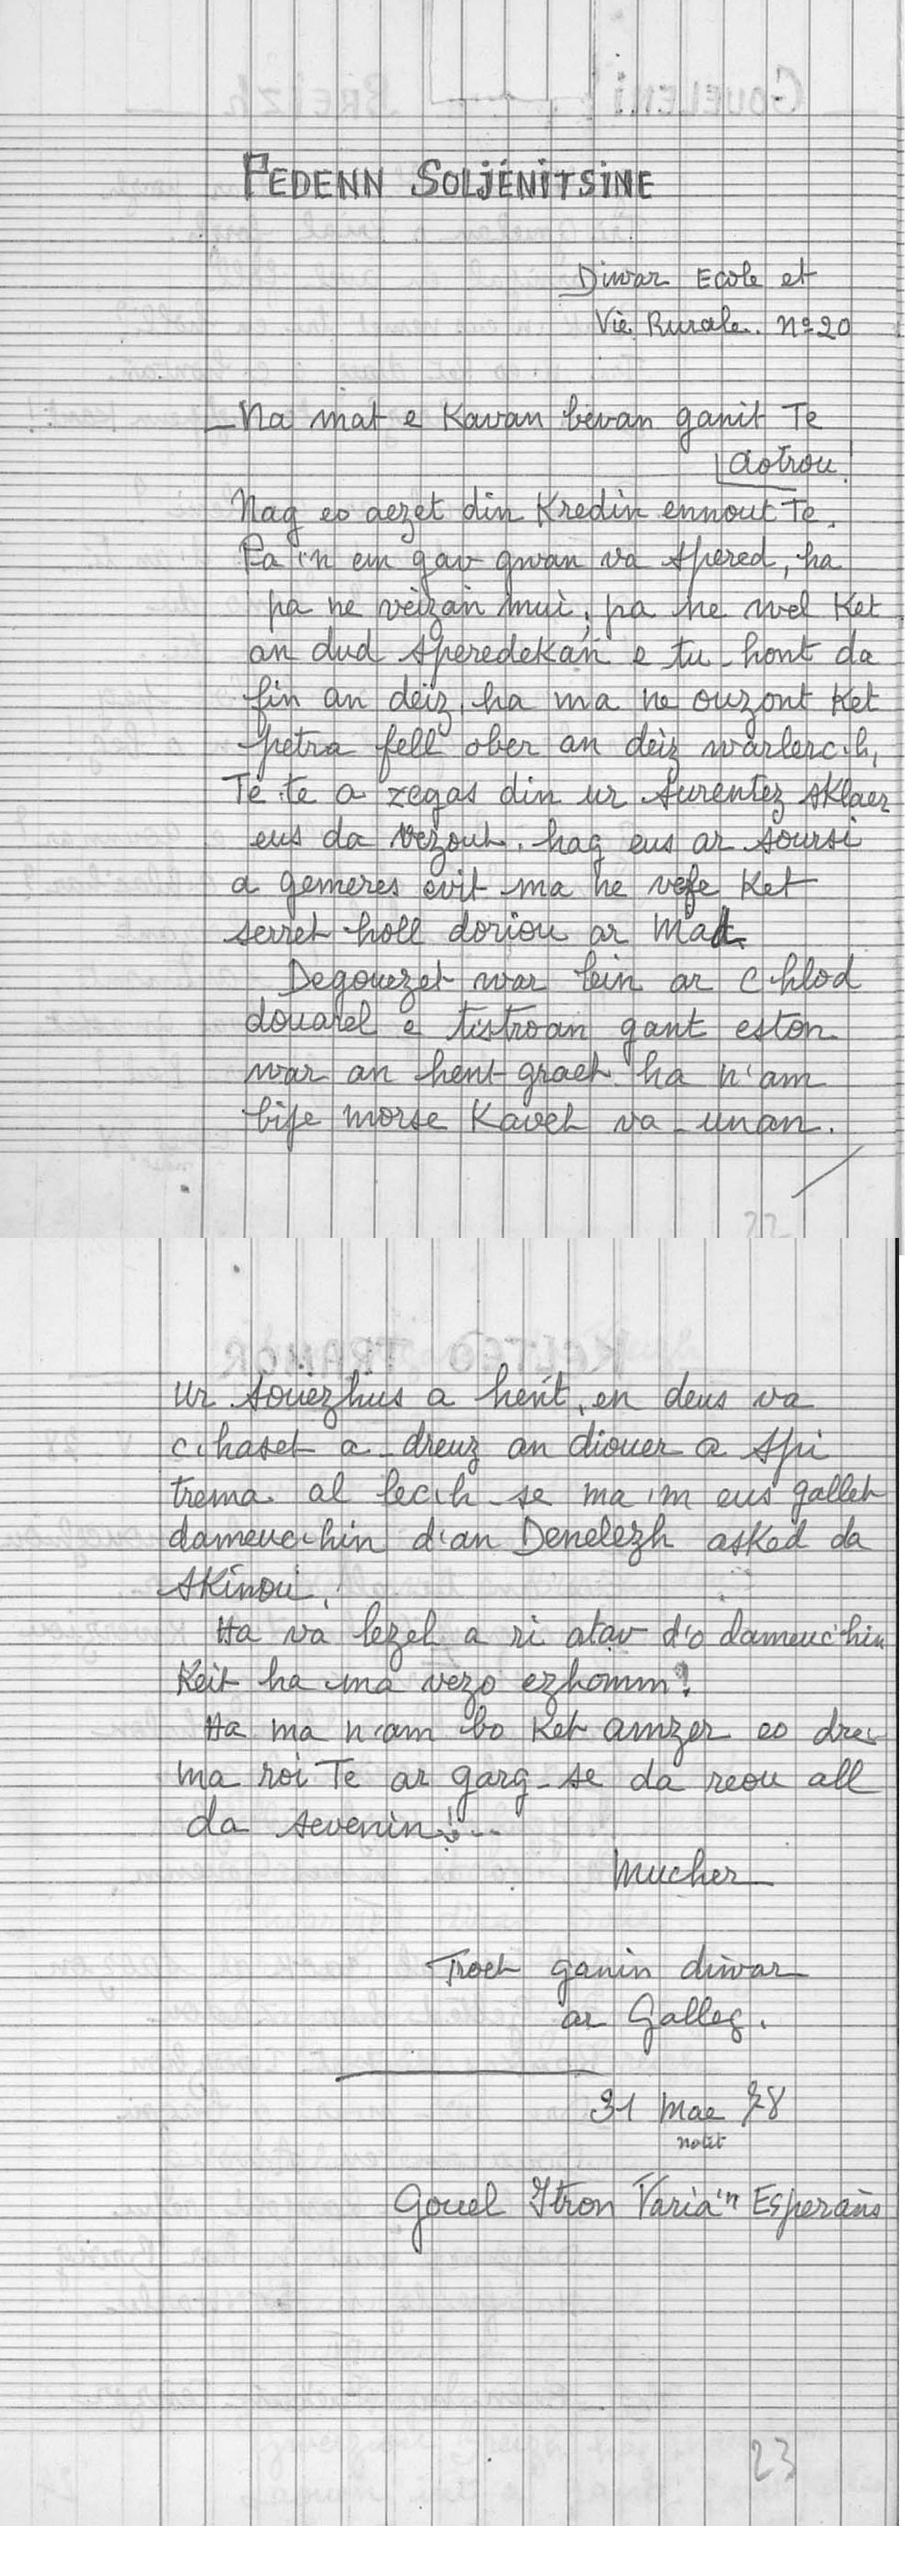 PEDENN SOLJÉNITSINE
Diwar Ecole et
Vie Rurale. nº 20
_ Na mat e Kavan bevan ganit Te
aotrou!
Nag eo aezet din Kredin ennout Te.
Pa 'n em gav gwan va spered, ha
pa ne veizan mui, pa ne wel Ket
an dud speredekañ e tu-hont da
fin an deiz, ha ma ne ouzont Ket
petra fell ober an deiz warlerc'h,
Te, te a zegas din ur surentez sklaer
eus da Vezout, hag eus ar soursi
a gemeres evit ma ne vefe Ket
serret holl doriou ar Mad.
Degouezet war lein ar c'hlod
douarel e tistroan gant eston
war an hent graet ha n'am
bije morse Kavet va-unan.
22
Ur souezhus a hent, en deus va
c'haset a-dreuz an diouer a spi
trema al lec'h-se ma 'm eus gallet
dameuc'hin d'an Denelezh asked da
skinoù.
Ha va lezel a ri atav d'o dameuc'hin
Keit ha ma vezo ezhomm!
Ha ma n'am bo Ket amzer eo dre
ma roi Te ar garg-se da reou all
da sevenin!...
Mucher
Troet ganin diwar
ar Galleg.
31 Mae 78
noter
Gouel Itron Varia 'n Esperañs
23